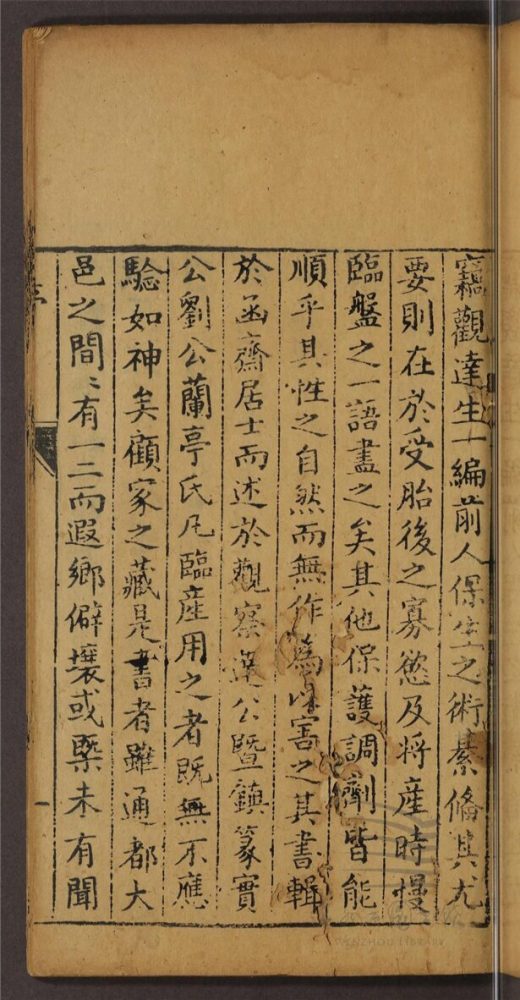 竊觀達生一編前人保生之術綦俻其尤
要則在於受胎後之寡慾及将産時慢
臨盤之一語盡之矣其他保護調劑皆能
順乎其性之自然而無作爲以害之其書輯
於函齋居士而述於觀察達公暨鎮篆實
公劉公蘭亭氏凡臨産用之者既無不應
驗如神矣顧家之藏是書者雖通都大
邑之間〻有一二而遐鄉僻壤或槩未有聞
序
一
WENZHOU LIBRARY